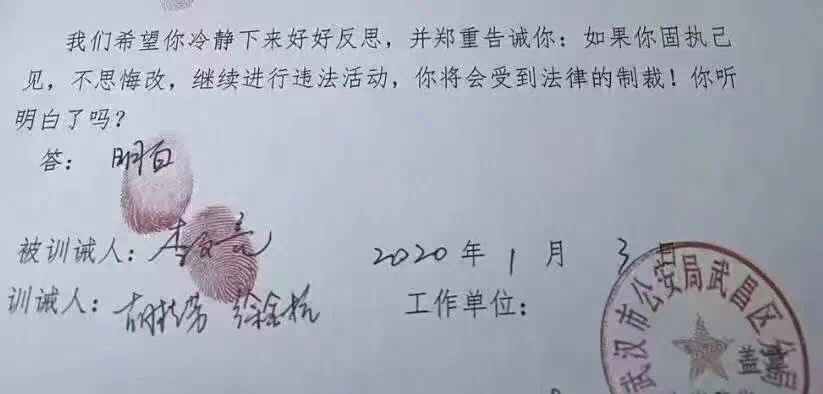 我们希望你冷静下来好好反思，并郑重告诫你：如果你固执己
见，不思悔改，继续进行违法活动，你将会受到法律的制裁！你听
明白了吗？
答：明白
被训诫人：李文亮 2020年1月3日
训诫人： 徐金杭 工作单位：
武汉市公安局武昌区分局
盖章